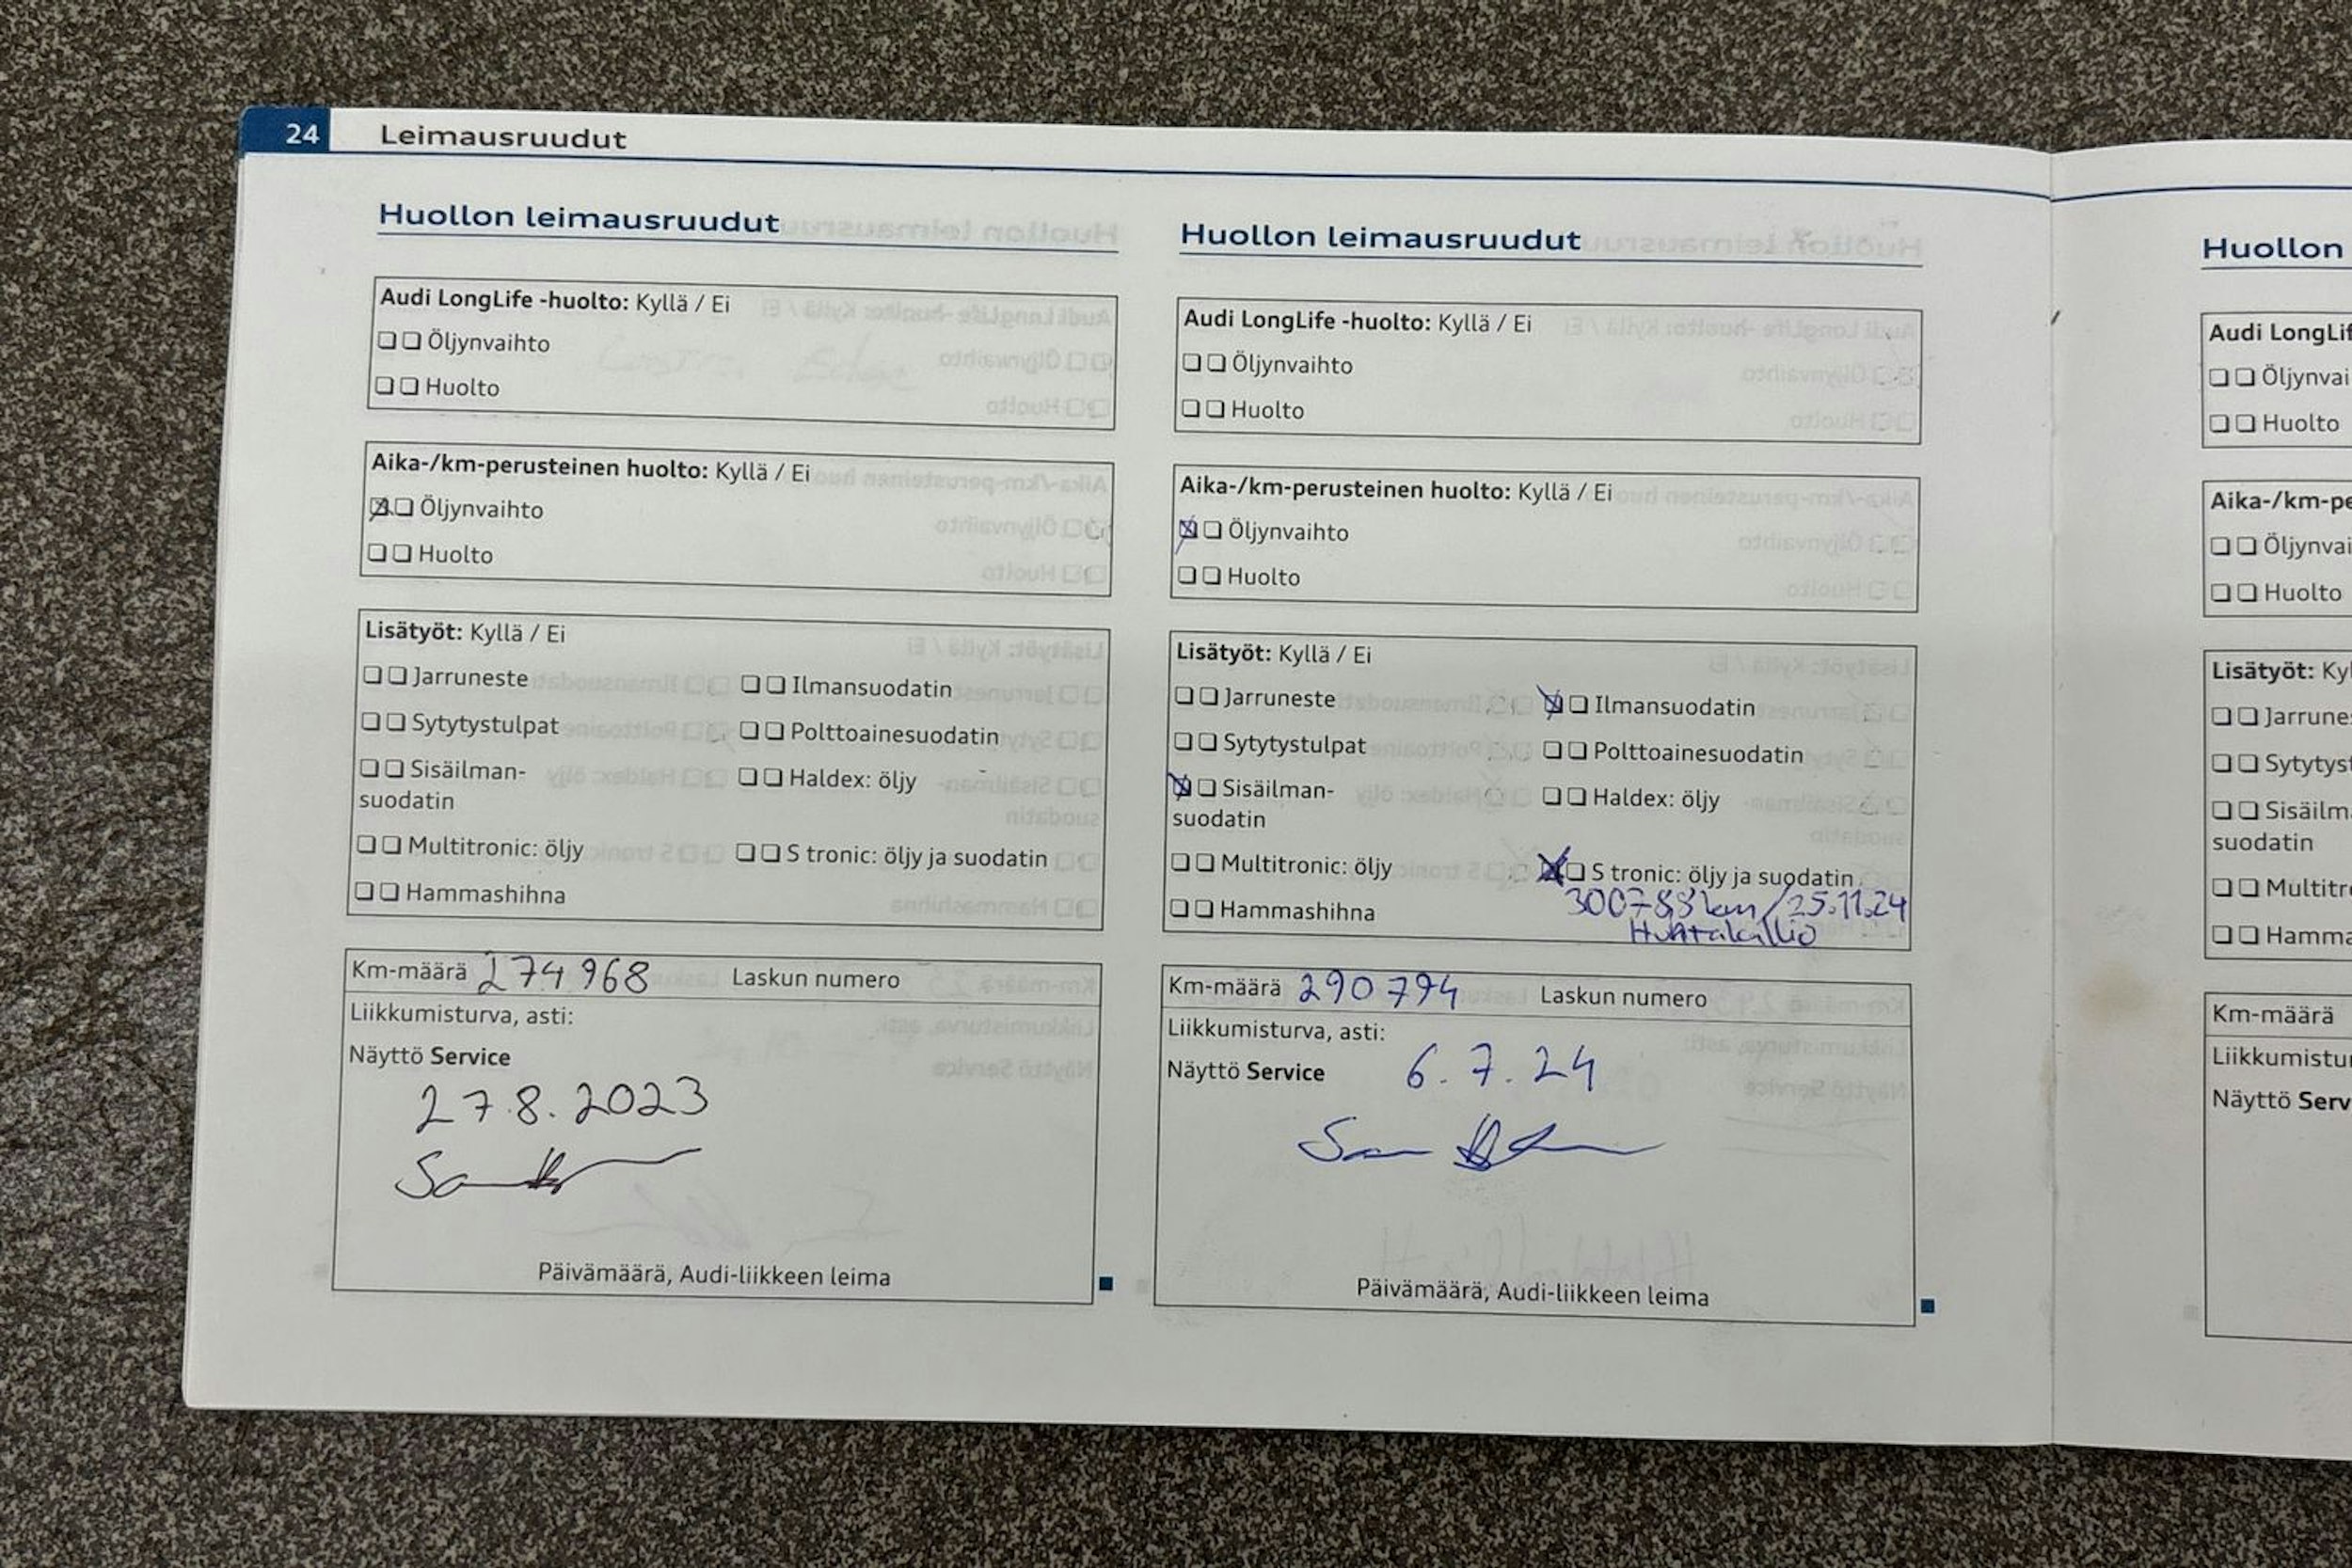 24 Leimausruudut
Huollon leimausruudut
Audi LongLife -huolto: Kyllä / Ei
Öljynvaihto
Huolto
Aika-/km-perusteinen huolto: Kyllä / Ei
Öljynvaihto
Huolto
Lisätyöt: Kyllä / Ei
Jarruneste Ilmansuodatin
Sytytystulpat Polttoainesuodatin
Sisäilman- Haldex: öljy
suodatin
Multitronic: öljy S tronic: öljy ja suodatin
Hammashihna
Km-määrä 274968 Laskun numero
Liikkumisturva, asti:
Näyttö Service
27.8.2023
Päivämäärä, Audi-liikkeen leima
Huollon leimausruudut
Audi LongLife -huolto: Kyllä / Ei
Öljynvaihto
Huolto
Aika-/km-perusteinen huolto: Kyllä / Ei
Öljynvaihto
Huolto
Lisätyöt: Kyllä / Ei
Jarruneste Ilmansuodatin
Sytytystulpat Polttoainesuodatin
Sisäilman- Haldex: öljy
suodatin
Multitronic: öljy S tronic: öljy ja suodatin
300788 km / 25.11.24
Hammashihna Huhtakallio
Km-määrä 290794 Laskun numero
Liikkumisturva, asti:
Näyttö Service 6.7.24
Päivämäärä, Audi-liikkeen leima
Huollon
Audi LongLif
Öljynvai
Huolto
Aika-/km-pe
Öljynvai
Huolto
Lisätyöt: Ky
Jarrune
Sytytyst
Sisäilm
suodatin
Multitr
Hamma
Km-määrä
Liikkumistu
Näyttö Serv